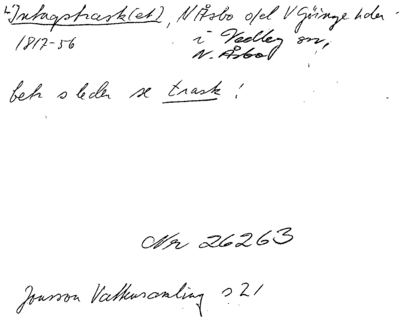 Intagstrask(et), N Åsbo o/d V Göinge hdr
1812-56 i Vedby sn,
N. Åsbo
betr s leden se trask!
Nr 26263
Jonsson Vattensamling s 21